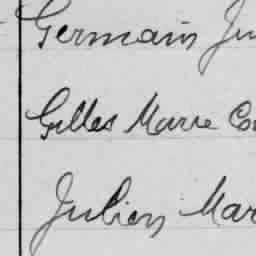 Germain Ju
Gilles Marie Co
Julien Mar